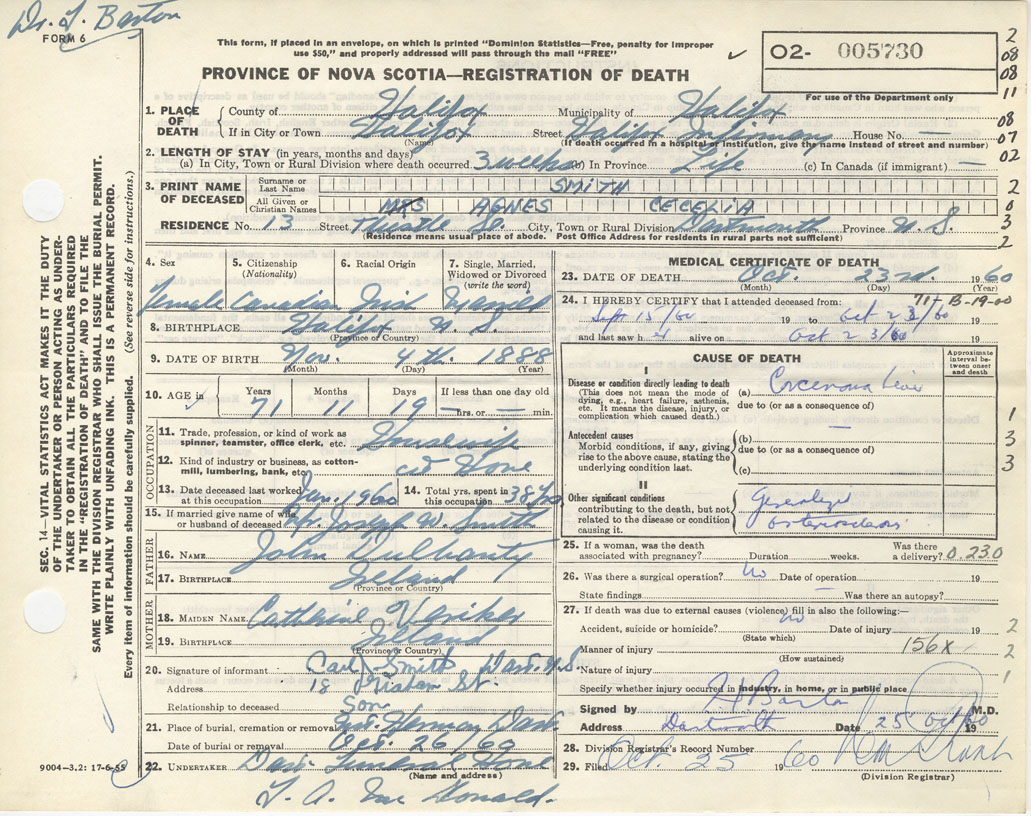 Dr. L. Barton
FORM 6
This form, if placed in an envelope, on which is printed "Dominion Statistics—Free, penalty for improper
use $50," and properly addressed will pass through the mail "FREE"
PROVINCE OF NOVA SCOTIA—REGISTRATION OF DEATH
02- 005730
For use of the Department only
2
08
08
11
08
07
02
2
0
3
2
1. PLACE OF DEATH County of Halifax Municipality of Halifax
If in City or Town Halifax (Name) Street Halifax Infirmary House No. —
(If death occurred in a hospital or institution, give the name instead of street and number)
2. LENGTH OF STAY (in years, months and days)
(a) In City, Town or Rural Division where death occurred. 3 weeks (b) In Province Life (c) In Canada (if immigrant) —
3. PRINT NAME OF DECEASED Surname or Last Name SMITH
All Given or Christian Names MRS AGNES CECELIA
RESIDENCE No. 13 Street Thistle St. City, Town or Rural Division Dartmouth Province N.S.
(Residence means usual place of abode. Post Office Address for residents in rural parts not sufficient)
SEC. 14—VITAL STATISTICS ACT MAKES IT THE DUTY
OF THE UNDERTAKER OR PERSON ACTING AS UNDER-
TAKER TO OBTAIN ALL THE PARTICULARS REQUIRED
IN THE "REGISTRATION OF DEATH" AND TO FILE THE
SAME WITH THE DIVISION REGISTRAR WHO SHALL ISSUE THE BURIAL PERMIT.
WRITE PLAINLY WITH UNFADING INK. THIS IS A PERMANENT RECORD.
Every item of information should be carefully supplied. (See reverse side for instructions.)
4. Sex 5. Citizenship (Nationality) 6. Racial Origin 7. Single, Married, Widowed or Divorced (write the word)
Female Canadian Irish Married
8. BIRTHPLACE Halifax N.S.
(Province or Country)
9. DATE OF BIRTH Nov. 4th. 1888
(Month) (Day) (Year)
10. AGE in Years Months Days If less than one day old
71 11 19 — hrs. or — min.
OCCUPATION
11. Trade, profession, or kind of work as spinner, teamster, office clerk, etc. Housewife
12. Kind of industry or business, as cotton-mill, lumbering, bank, etc. at Home
13. Date deceased last worked at this occupation Jan. 1960 14. Total yrs. spent in this occupation 38 yrs
15. If married give name of wife or husband of deceased Joseph W. Smith
FATHER
16. NAME John Dulhanty
17. BIRTHPLACE Ireland
(Province or Country)
MOTHER
18. MAIDEN NAME Catherine
19. BIRTHPLACE Ireland
(Province or Country)
20. Signature of informant Carl J. Smith Dart. N.S.
Address 18 St.
Relationship to deceased Son
21. Place of burial, cremation or removal Dart.
Date of burial or removal Oct. 26/60
22. UNDERTAKER Dart Funeral Home
(Name and address)
L. A. Mc Donald.
9004—3.2: 17-6-55
MEDICAL CERTIFICATE OF DEATH
23. DATE OF DEATH Oct. 23rd. 1960
(Month) (Day) (Year)
24. I HEREBY CERTIFY that I attended deceased from: 71-B-19-00
Sept 15/60 19 to Oct 23/60 19
and last saw h er alive on Oct 23/60 19
CAUSE OF DEATH
Approximate interval between onset and death
I
Disease or condition directly leading to death
(This does not mean the mode of dying, e.g., heart failure, asthenia, etc. It means the disease, injury, or complication which caused death.)
(a) Carcinoma Liver
due to (or as a consequence of)
Antecedent causes
Morbid conditions, if any, giving rise to the above cause, stating the underlying condition last.
(b)
due to (or as a consequence of)
(c)
II
Other significant conditions
contributing to the death, but not related to the disease or condition causing it.
Generalized
1
3
3
25. If a woman, was the death associated with pregnancy? Duration weeks. Was there a delivery? 0.230
26. Was there a surgical operation? No Date of operation 19
State findings — Was there an autopsy?
27. If death was due to external causes (violence) fill in also the following:—
Accident, suicide or homicide? no Date of injury 19
(State which)
Manner of injury 156X
(How sustained)
Nature of injury
2
2
1
Specify whether injury occurred in industry, in home, or in public place
Signed by L Barton M.D.
Address Dartmouth Date 25 Oct/60 19
28. Division Registrar's Record Number
29. Filed Oct 25 1960
(Division Registrar)